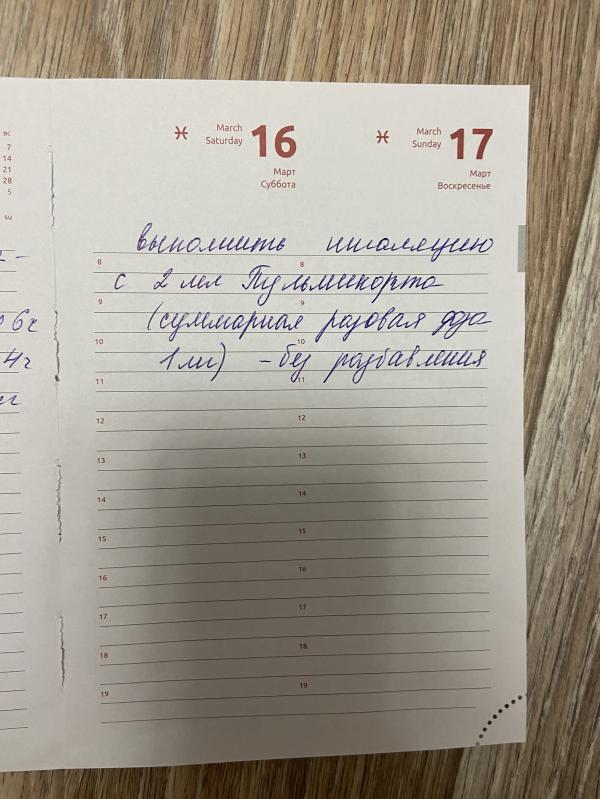 вс
7
14
21
28
5
su
March
Saturday
16
Март
Суббота
March
Sunday
17
Март
Воскресенье
выполнить ингаляцию
с 2 мл Пульмикорта
(суммарная разовая доза
1 мг) - без разбавления
6ч
4ч
8 8
9 9
10 10
11 11
12 12
13 13
14 14
15 15
16 16
17 17
18 18
19 19